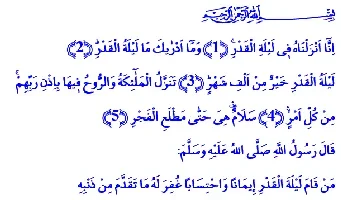 بِسْمِ اللَّهِ الرَّحْمَنِ الرَّحِيمِ
إِنَّا أَنْزَلْنَاهُ فِي لَيْلَةِ الْقَدْرِ ﴿1﴾ وَمَا أَدْرٰيكَ مَا لَيْلَةُ الْقَدْرِ ﴿2﴾
لَيْلَةُ الْقَدْرِ خَيْرٌ مِنْ اَلْفِ شَهْرٍ ﴿3﴾ تَنَزَّلُ الْمَلٰٓئِكَةُ وَالرُّوحُ فِيهَا بِاِذْنِ رَبِّهِمْ
مِنْ كُلِّ اَمْرٍ ﴿4﴾ سَلَامٌ هِيَ حَتّٰى مَطْلَعِ الْفَجْرِ ﴿5﴾
قَالَ رَسُولُ اللهِ صَلَّى اللهُ عَلَيْهِ وَسَلَّمَ:
مَن قَامَ لَيْلَةَ الْقَدْرِ إِيمَانًا وَاحْتِسَابًا غُفِرَ لَهُ مَا تَقَدَّمَ مِنْ ذَنْبِهِ